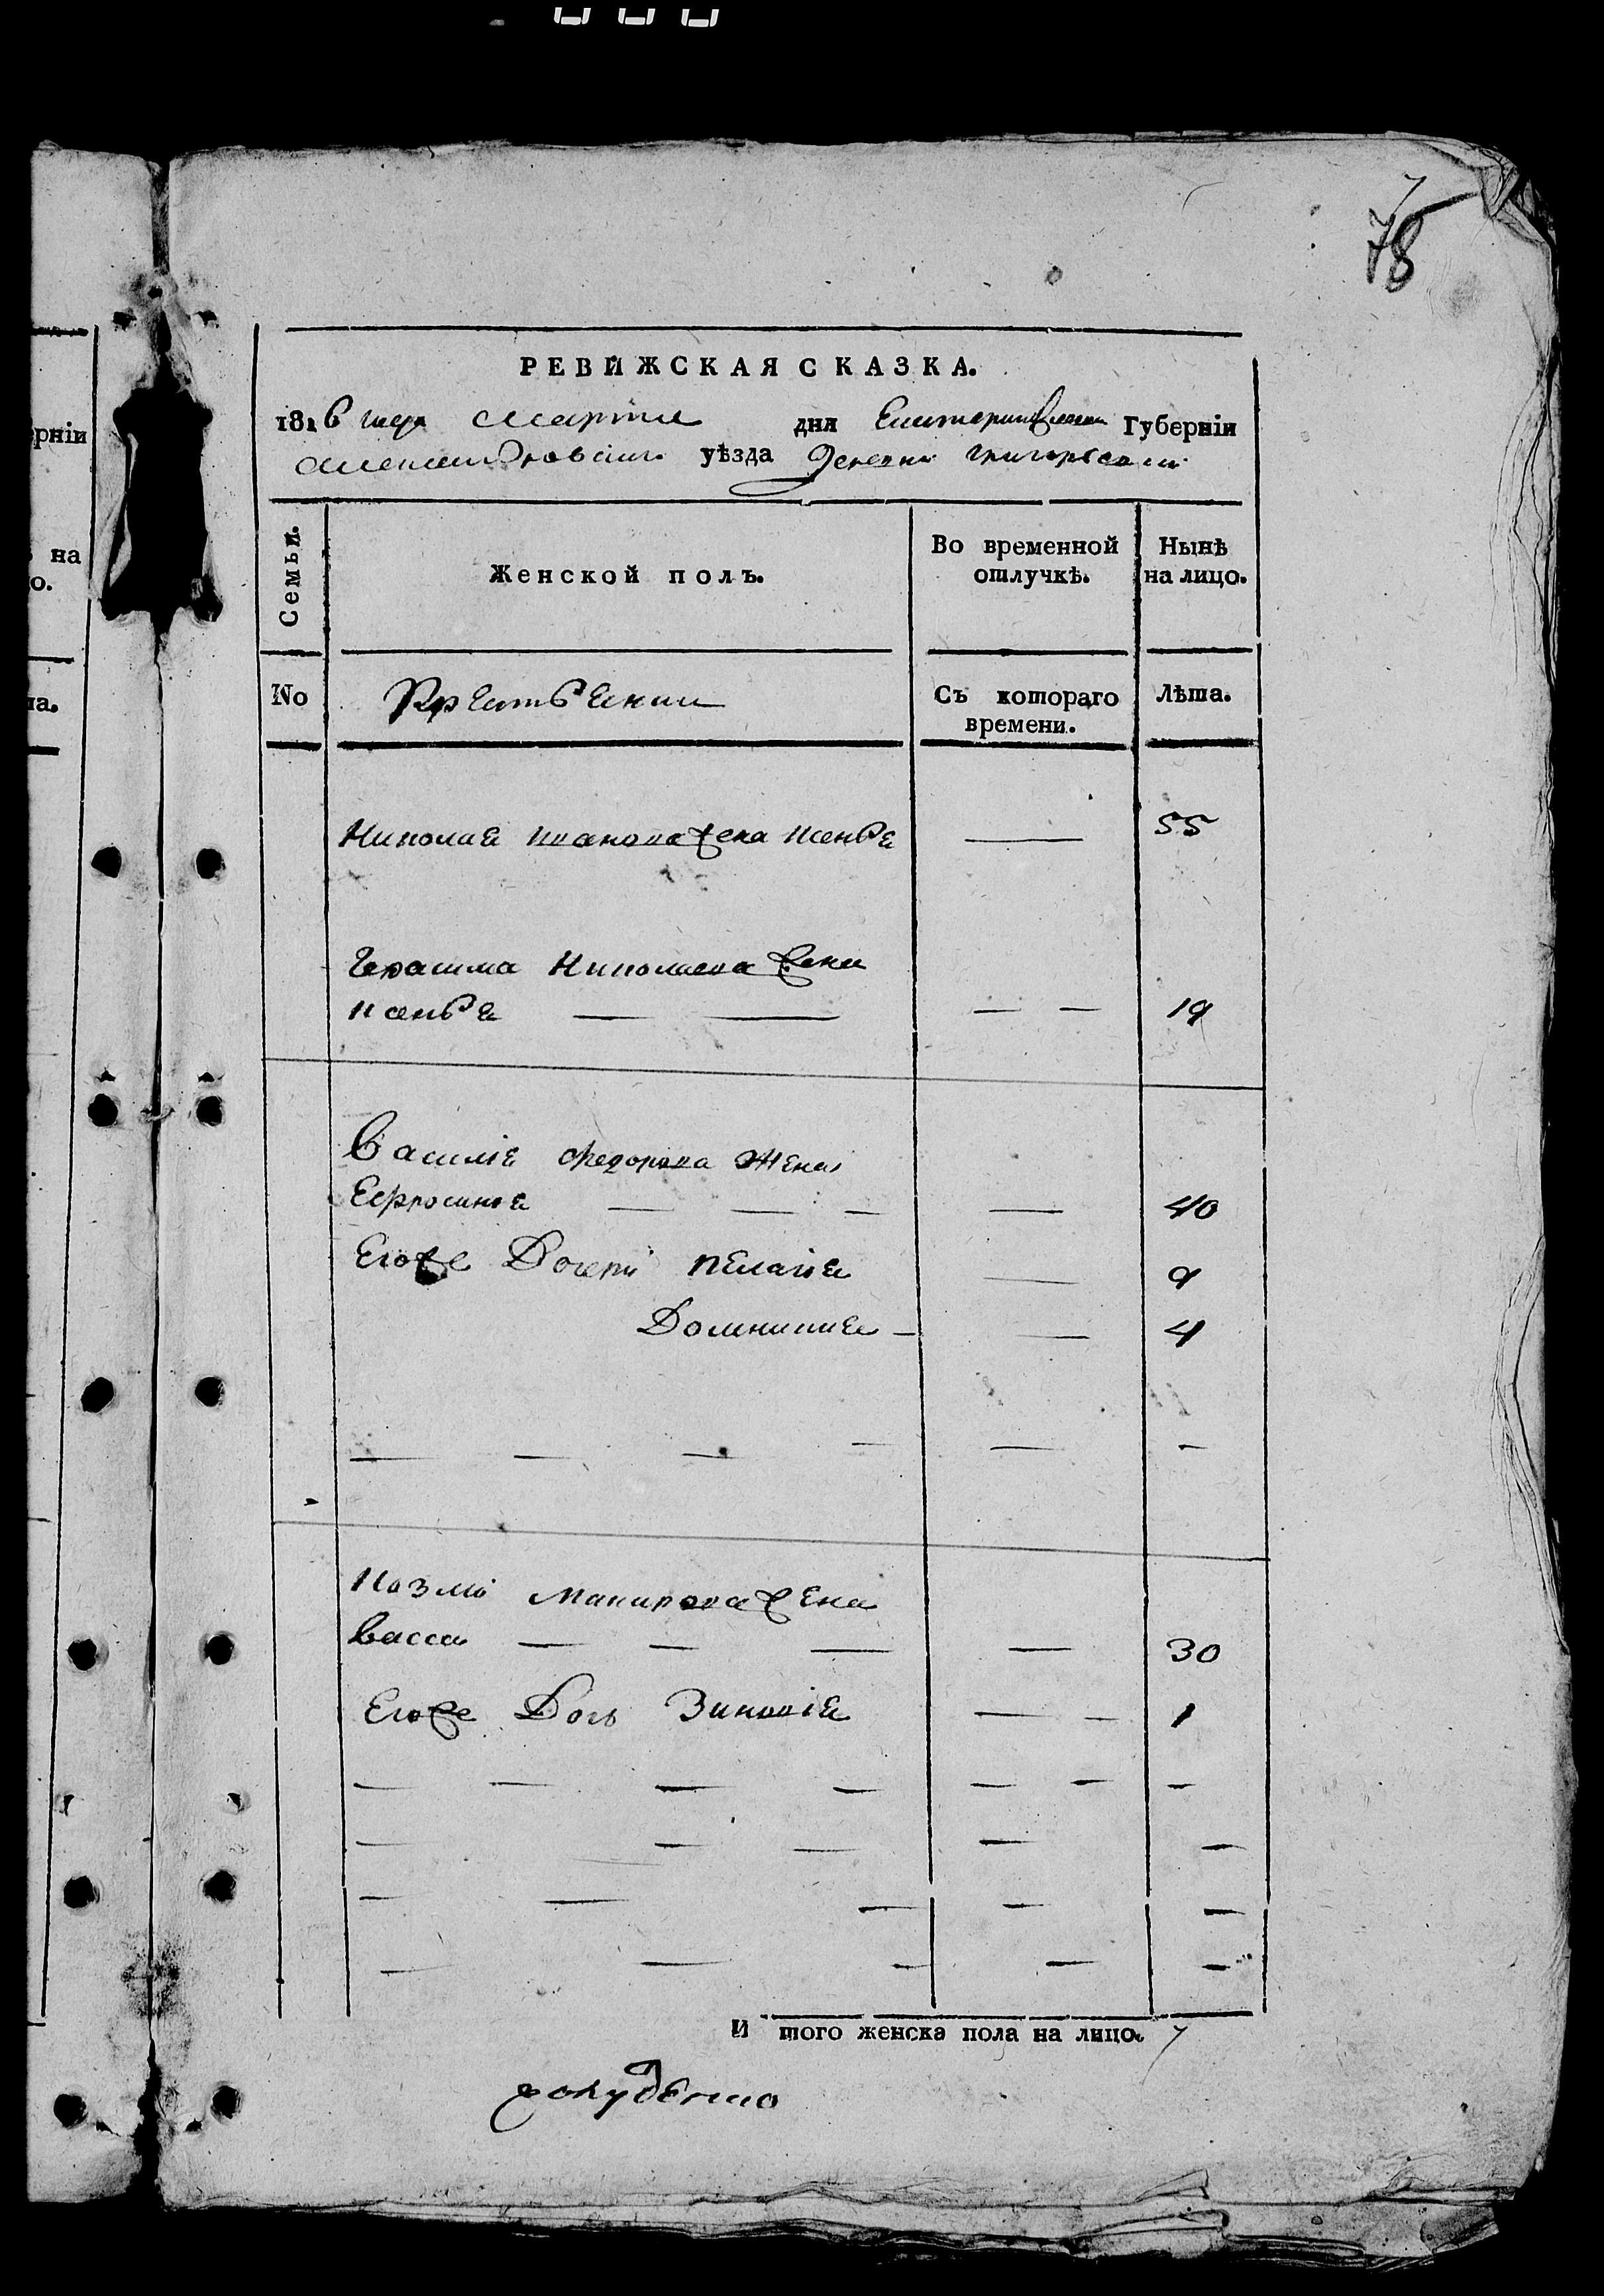 7
78
РЕВИЖСКАЯ СКАЗКА.
1816 года марта дня Екатеринославской Губерніи
александровскаго уѣзда деревни григорьевки
Семьи.
Женской полъ.
Во временной отлучкѣ.
Нынѣ на лицо.
No
Съ котораго времени.
Лѣта.
Николая иванова жена ксенья — 55
Герасима Николаева жена
ксенья — — — — 19
Василія федорова жена
Ефросинья — — — — 40
Егоже дочери пелагія — 9
Домникия — — 4
Козмы макарова жена
васса — — — — 30
Егоже дочь Зиновія — — 1
И того женска пола на лицо. 7
ерніи
на
о.
та.